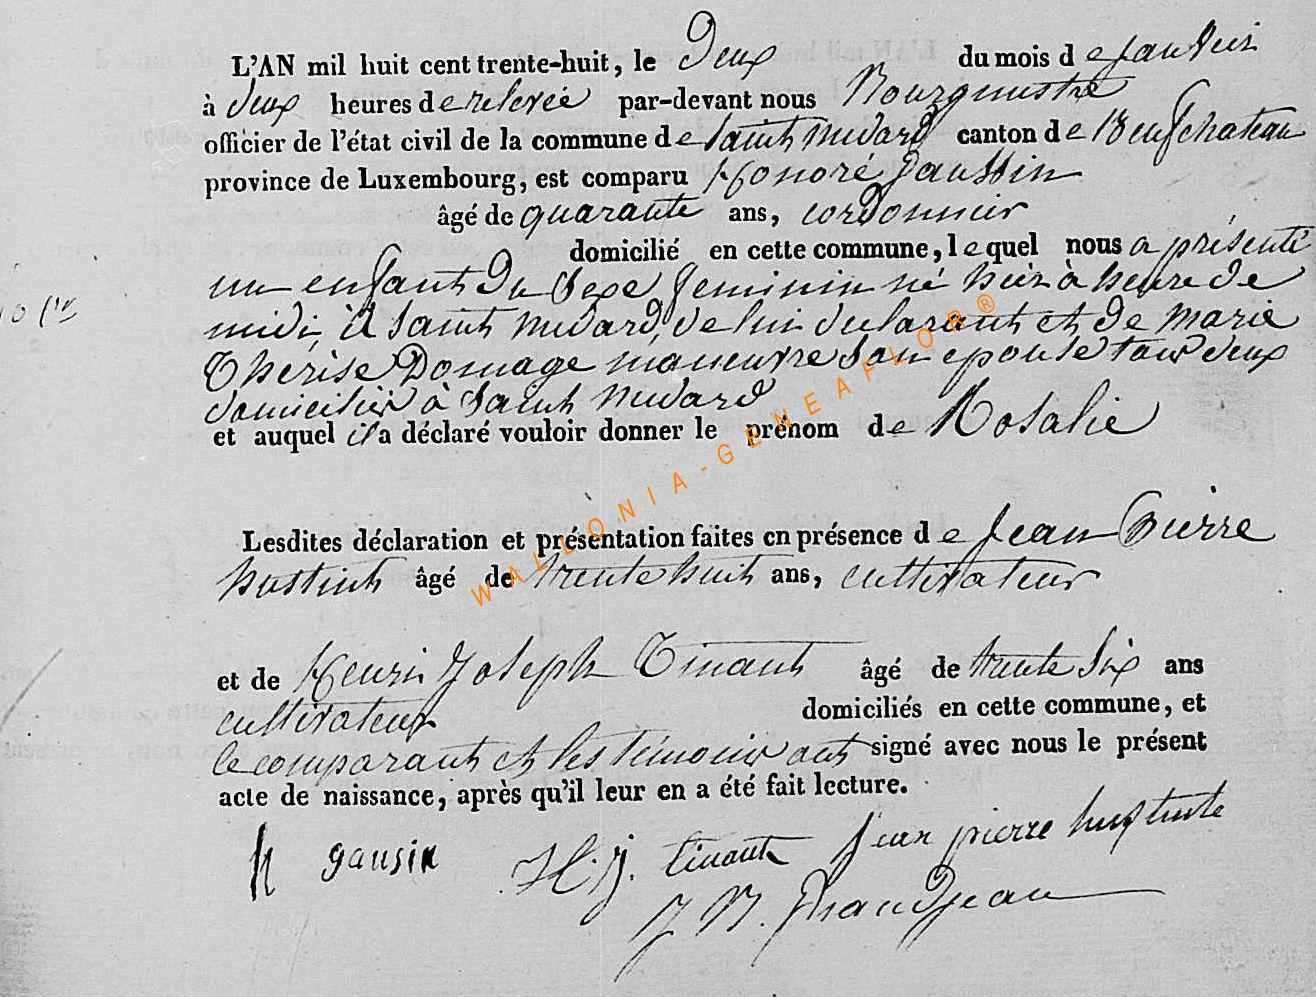 L'AN mil huit cent trente-huit, le Deux du mois de Janvier
à deux heures de relevée par-devant nous Bourgmestre
officier de l'état civil de la commune de Saint medard canton de Neufchateau
province de Luxembourg, est comparu Honoré Gaussin
âgé de quarante ans, cordonnier
domicilié en cette commune, lequel nous a présenté
un enfant du Sexe feminin né hier à heure de
midi, à Saint medard, de lui declarant et de Marie
Therese Domage maneuvre Son epouse tous deux
domicilier à Saint medard
et auquel il a déclaré vouloir donner le prénom de Rosalie
Lesdites déclaration et présentation faites en présence de Jean Pierre
hustint âgé de trente huit ans, cultivateur
et de Henri Joseph Tinant âgé de trente Six ans
cultivateur domiciliés en cette commune, et
le comparant et les témoins ont signé avec nous le présent
acte de naissance, après qu'il leur en a été fait lecture.
h gausin H. J. tinant Jean pierre
J B. Grandjean
WALLONIA-GENEAFLOR®